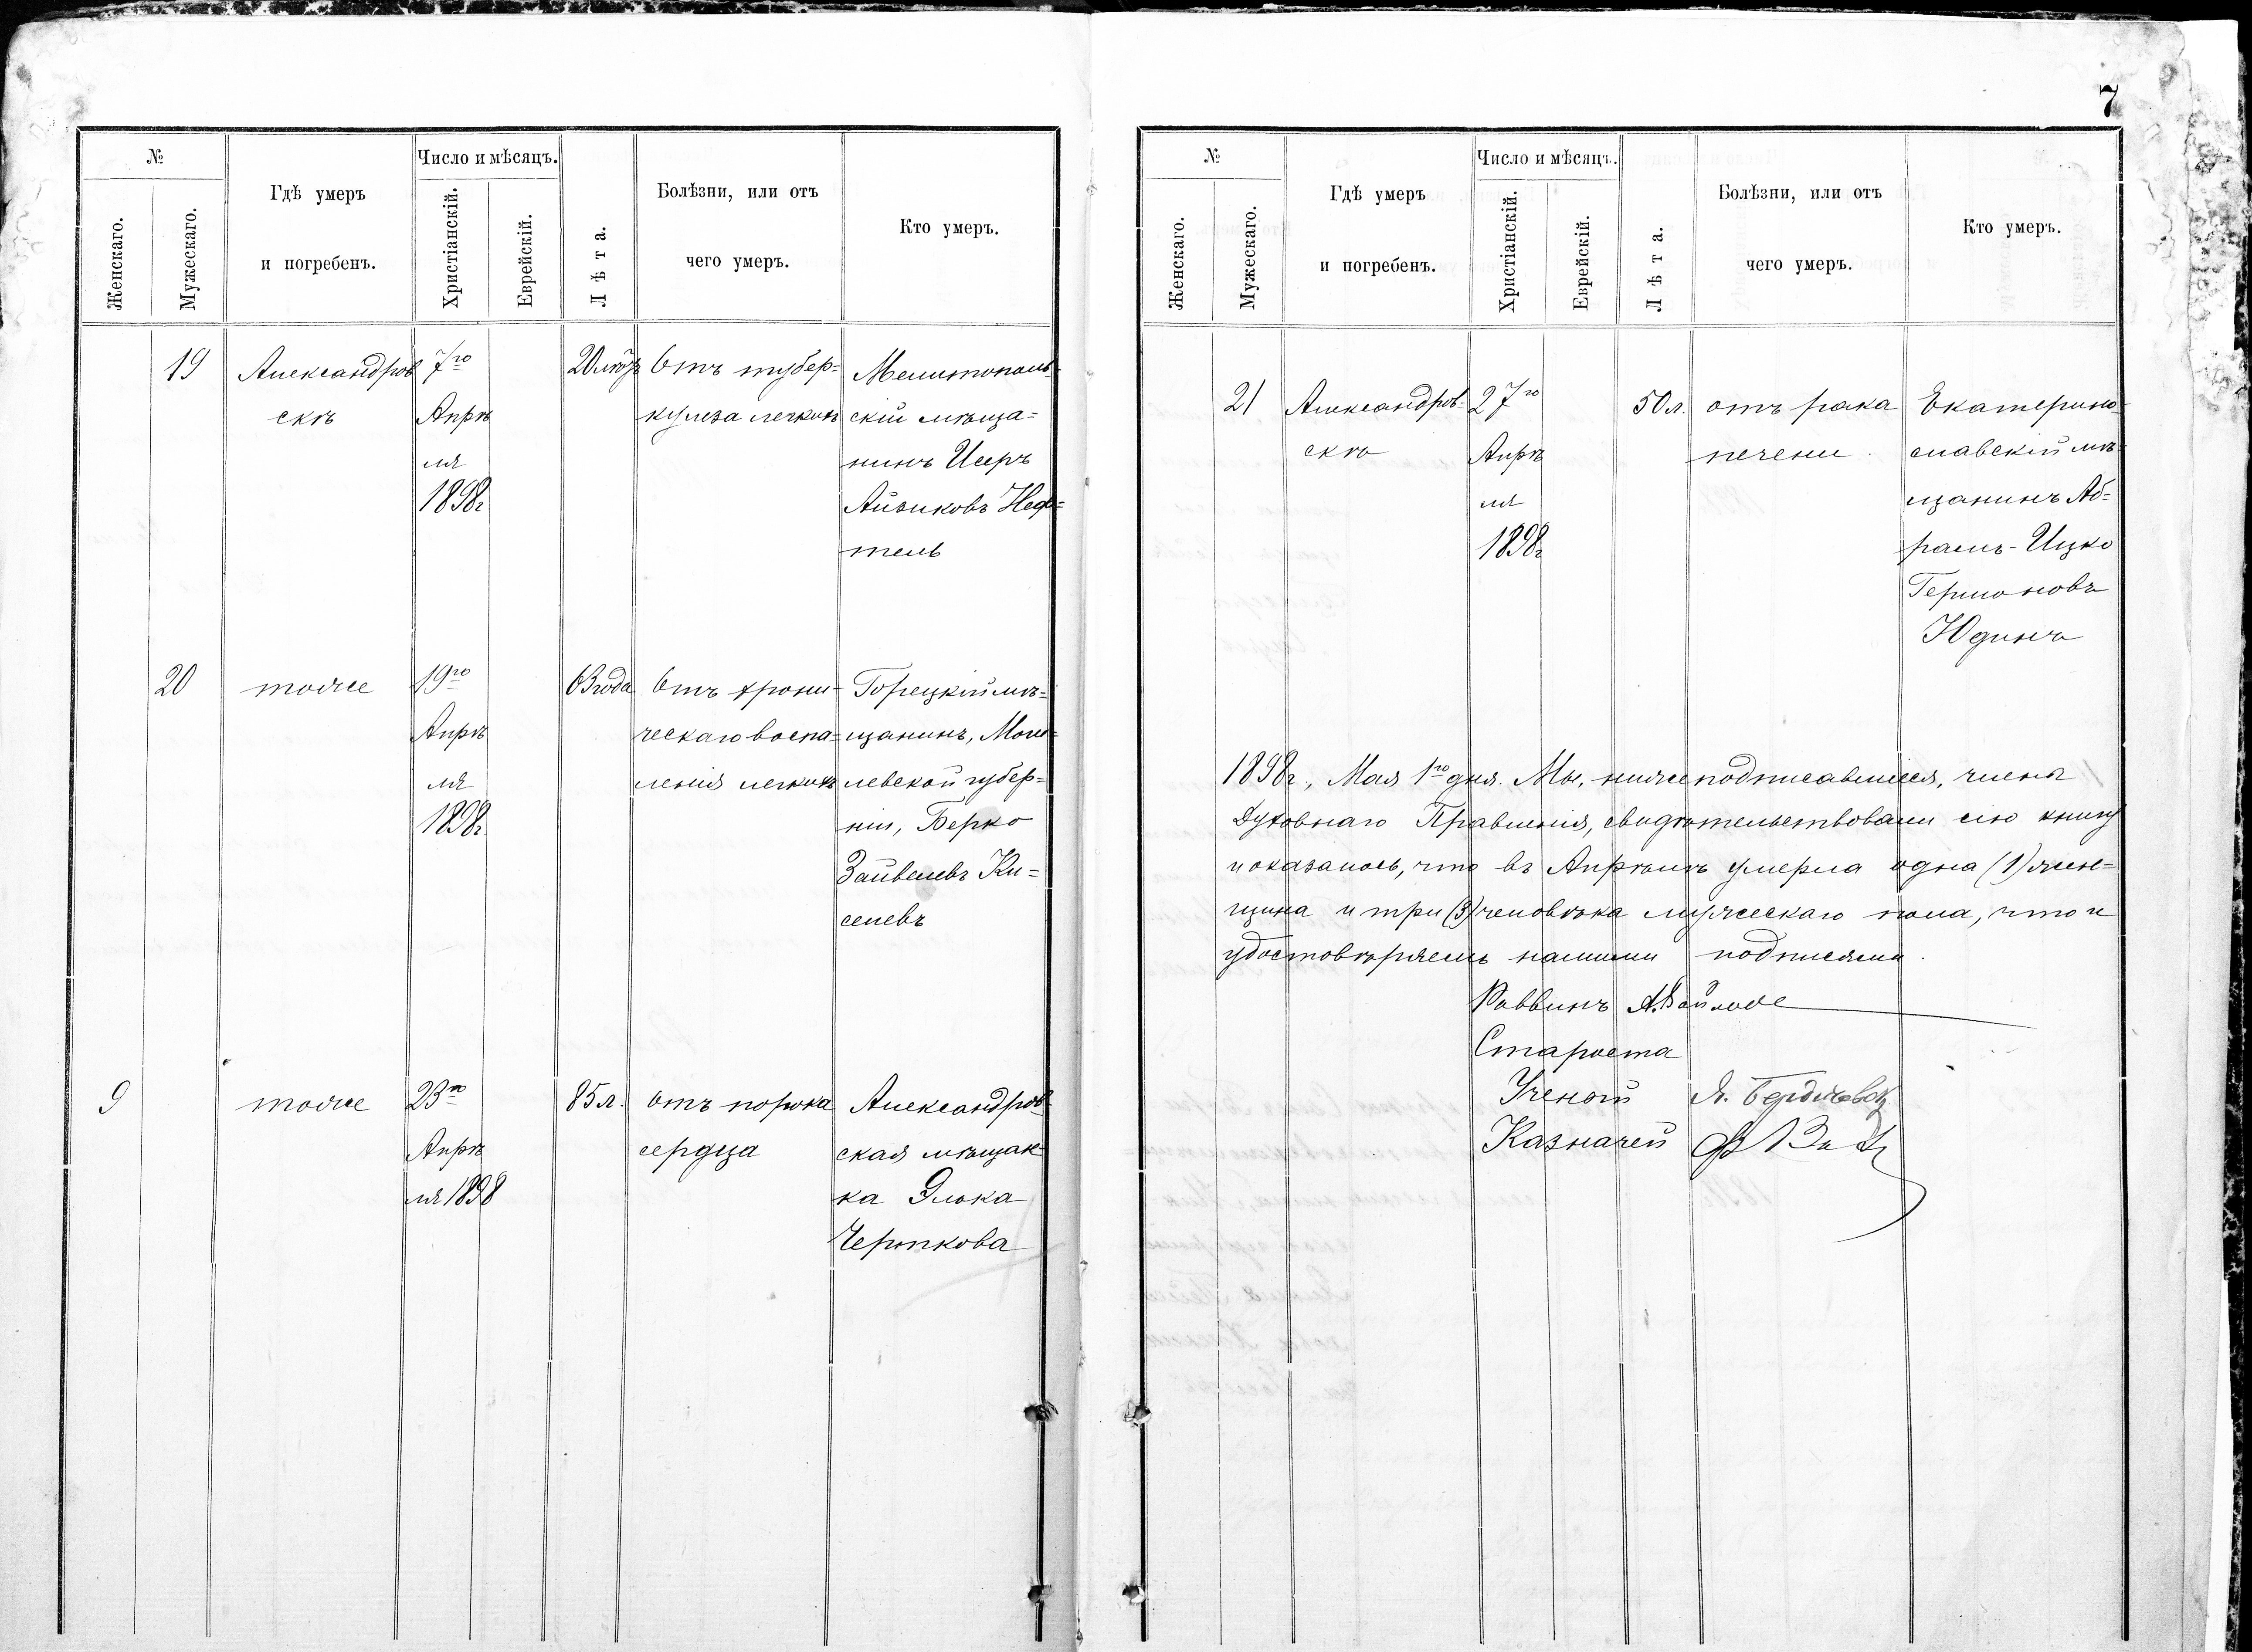 №
Женскаго.
Мужескаго.
Гдѣ умеръ
и погребенъ.
Число и мѣсяцъ.
Христіанскій.
Еврейскій.
Лѣта.
Болѣзни, или отъ
чего умеръ.
Кто умеръ.
19
Александров
скѣ
7го
Апрѣ
ля
1898г
20 лѣтъ
Отъ тубер=
кулеза легкихъ
Мелитополь-
скій мѣща=
нинъ Исеръ
Айзиковъ Неф=
тель
20
тоже
19го
Апрѣ
ля
1898г
63 года
Отъ хрони-
ческаго воспа=
ленія легкихъ
Горецкій мѣ=
щанинъ, Моги=
левской губер=
ніи, Берко
Зайвелевъ Ки=
селевъ
9
тоже
23го
Апрѣ
ля 1898
85 л.
Отъ порока
сердца
Александров-
ская мѣщан-
ка Элька
Черткова
7
№
Женскаго.
Мужескаго.
Гдѣ умеръ
и погребенъ.
Число и мѣсяцъ.
Христіанскій.
Еврейскій.
Лѣта.
Болѣзни, или отъ
чего умеръ.
Кто умеръ.
21
Александров=
скѣ
27го
Апрѣ
ля
1898г
50 л.
отъ рака
печени.
Екатерино-
славскій мѣ-
щанинъ Аб-
рамъ-Ицко
Термоновъ
Юдинъ
1898г., Мая 1го дня. Мы, нижеподписавшиеся, члены
Духовнаго Правленія, свидѣтельствовали сію книгу
и оказалось, что въ Апрѣлѣ умерла одна (1) жен=
щина и три (3) человѣка мужескаго пола, что и
удостовѣряемъ нашими подписями.
Раввинъ А.
Староста
Ученый Я. Бердичевск
Казначей